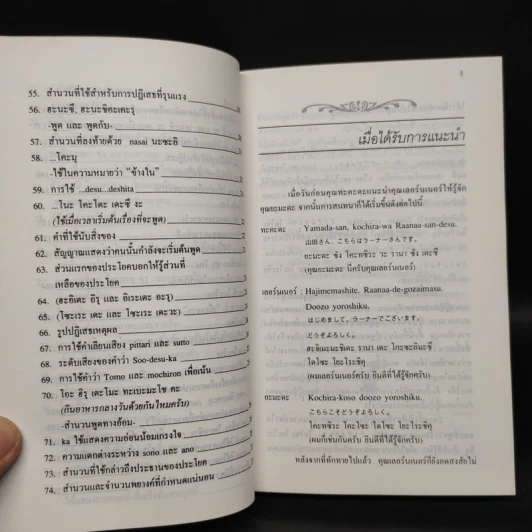 55. สำนวนที่ใช้สำหรับการปฏิเสธที่รุนแรง
56. ฮะนะซึ, ฮะนะชิคะเคะรุ
-พูด และ พูดกับ-
57. สำนวนที่ลงท้ายด้วย nasai นะซะอิ
58. ...โคะมุ
-ใช้ในความหมายว่า "ข้างใน"
59. การใช้ ...desu ...deshita
60. ...โนะ โคะโตะ เดะซึ งะ
(ใช้เมื่อเวลาเริ่มต้นเรื่องที่จะพูด)
61. คำที่ใช้นับสิ่งของ
62. สัญญาณแสดงว่าคนนั้นกำลังจะเริ่มต้นพูด
63. ส่วนแรกของประโยคบอกให้รู้ส่วนที่
เหลือของประโยค
64. (ฮะอิเตะ อิรุ และ อิเระเตะ อะรุ)
65. (โซะเระ เดะ และ โซะเระ เดะวะ)
66. รูปปฏิเสธเหตุผล
67. การใช้คำเลียนเสียง pittari และ sutto
68. ระดับเสียงของคำว่า Soo-desu-ka
69. การใช้คำว่า Tomo และ mochiron เพื่อเน้น
70. โอะ ฮิรุ เดะโมะ ทะเบะมะโช คะ
(กินอาหารกลางวันด้วยกันไหมครับ)
-สำนวนพูดทางอ้อม-
71. ka ใช้แสดงความอ่อนน้อมเกรงใจ
72. ความแตกต่างระหว่าง sono และ ano
73. สำนวนที่ใช้กล่าวถึงประธานของประโยค
74. สำนวนและจำนวนพยางค์ที่กำหนดแน่นอน
1
เมื่อได้รับการแนะนำ
เมื่อวันก่อนคุณทะคะดะแนะนำคุณเลอร์นเนอร์ให้รู้จัก
คุณยะมะดะ จากนั้นการสนทนาก็ได้เริ่มขึ้นดังต่อไปนี้
ทะคะดะ : Yamada-san, kochira-wa Raanaa-san-desu.
山田さん、こちらはラーナーさんです。
ยะมะดะ ซัง โคะทชิระ วะ รานา ซัง เดะซึ
(คุณยะมะดะ นี่ครับคุณเลอร์นเนอร์)
เลอร์นเนอร์ : Hajimemashite. Raanaa-de-gozaimasu.
Doozo yoroshiku.
はじめまして。ラーナーでございます。
どうぞよろしく。
โดโซะ โยะโระชิคุ
(ผมเลอร์นเนอร์ครับ ยินดีที่ได้รู้จักครับ)
ยะมะดะ : Kochira-koso doozo yoroshiku.
こちらこそどうぞよろしく。
โคะทชิระ โคะโซะ โดโซะ โยะโระชิคุ
(ผมก็เช่นกันครับ ยินดีที่ได้รู้จักครับ)
หลังจากที่ทักทายไปแล้ว คุณเลอร์นเนอร์ก็ยังอดสงสัยไม่